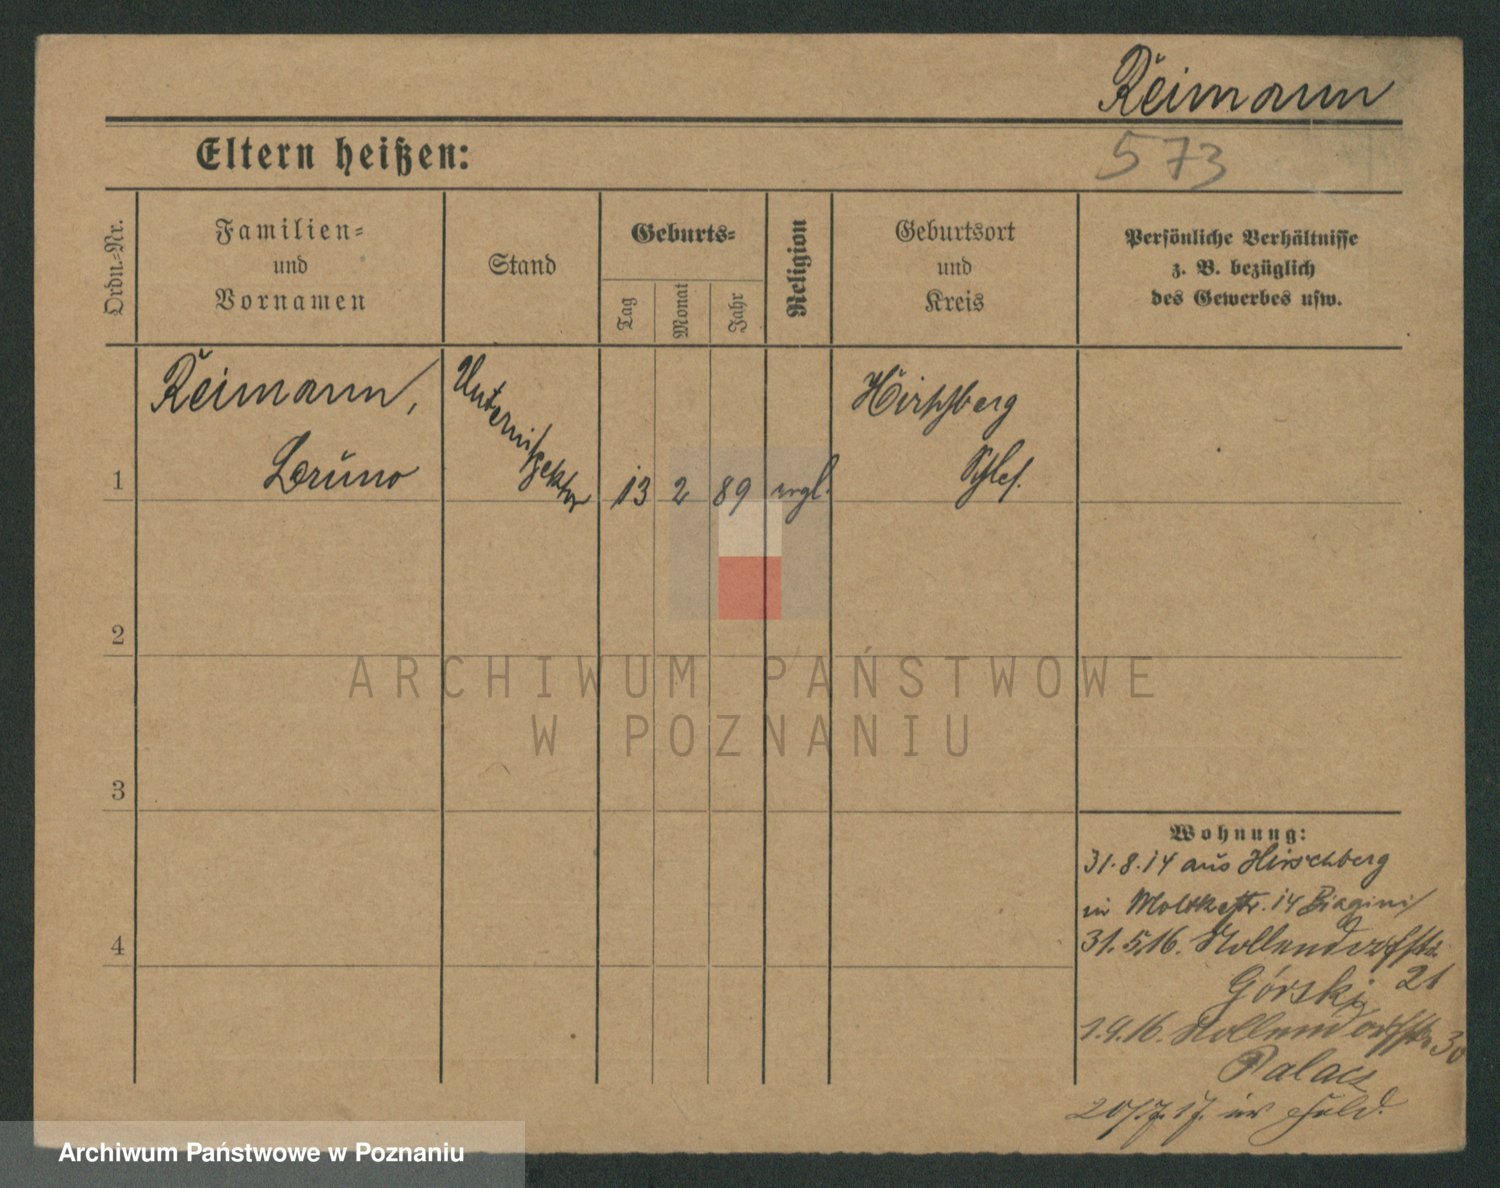 Reimann
573
Eltern heißen:
Ordn.-Nr.
Familien-
und
Vornamen
Stand
Geburts-
Tag
Monat
Jahr
Religion
Geburtsort
und
Kreis
Persönliche Verhältnisse
z. B. bezüglich
des Gewerbes usw.
Reimann,
Bruno
1
Unterinspektor
13 2 89 evgl.
Hirschberg
Schles.
2
3
4
ARCHIWUM PAŃSTWOWE
W POZNANIU
Wohnung:
31.8.14 aus Hirschberg
in Moltkestr. 14 Biagini
31.5.16. Nollendorfstr.
21
Górski
1.9.16. Nollendorfstr. 30
Palacz
20/7.17. im Feld.
Archiwum Państwowe w Poznaniu